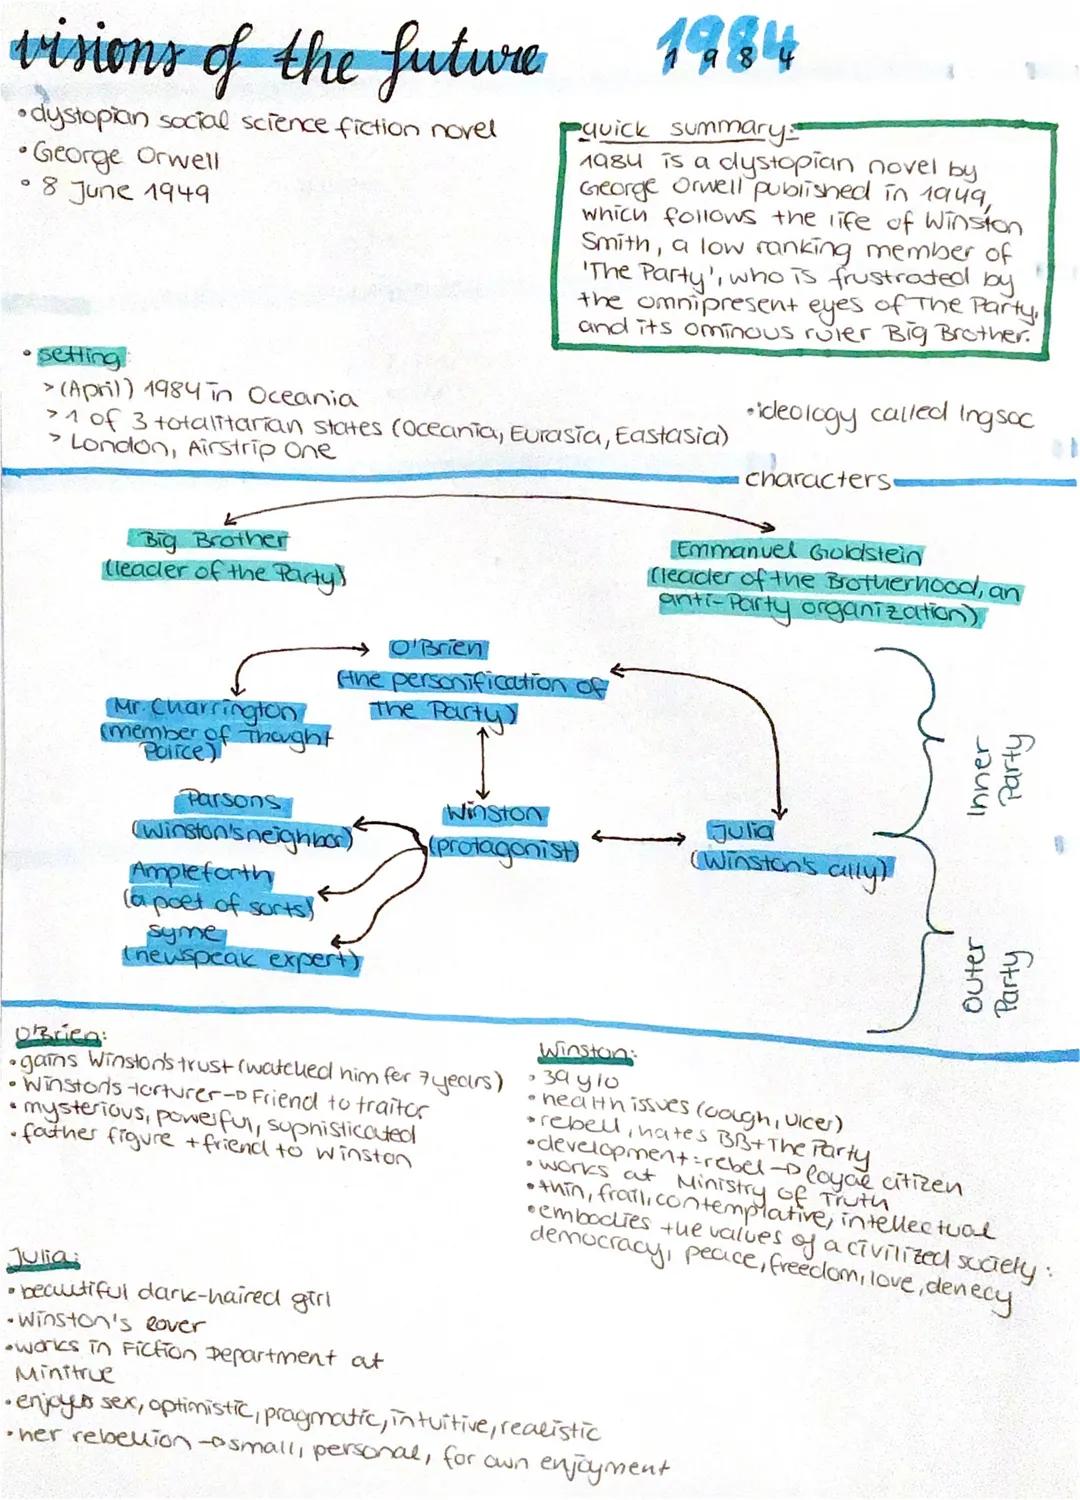 visions of the future
1984
1984
•dystopian social science fiction novel
•George Orwell
•8 June 1949
quick summary:
1984 is a dystopian novel by
George Orwell published in 1949,
which follows the life of Winston
Smith, a low ranking member of
'The Party', who is frustrated by
the omnipresent eyes of The Party,
and its ominous ruler Big Brother.
•setting:
>(April) 1984 in Oceania
>1 of 3 totalitarian states (Oceania, Eurasia, Eastasia)
> London, Airstrip One
•ideology called Ingsoc
characters
Big Brother
(leader of the Party)
Emmanuel Goldstein
(leader of the Brotherhood, an
anti-Party organization)
O'Brien
(the personification of
The Party)
Mr. Charrington
(member of Thought
Police)
Inner
Party
Parsons
(Winston's neighbor)
Winston
(protagonist)
Julia
(Winston's ally)
Ampleforth
(a poet of sorts)
Syme
(newspeak expert)
Outer
Party
O'Brien:
•gains Winston's trust (watched him for 7 years)
•Winston's torturer → Friend to traitor
•mysterious, powerful, sophisticated
•father figure + friend to Winston
Winston:
•39 y/o
•health issues (cough, ulcer)
•rebell, hates BB+The Party
•development: rebel → loyal citizen
•works at Ministry of Truth
•thin, frail, contemplative, intellectual
•embodies the values of a civilized society:
democracy, peace, freedom, love, denecy
Julia:
•beautiful dark-haired girl
•Winston's lover
•works in Fiction Department at
Minitrue
•enjoys sex, optimistic, pragmatic, intuitive, realistic
•her rebellion → small, personal, for own enjoyment